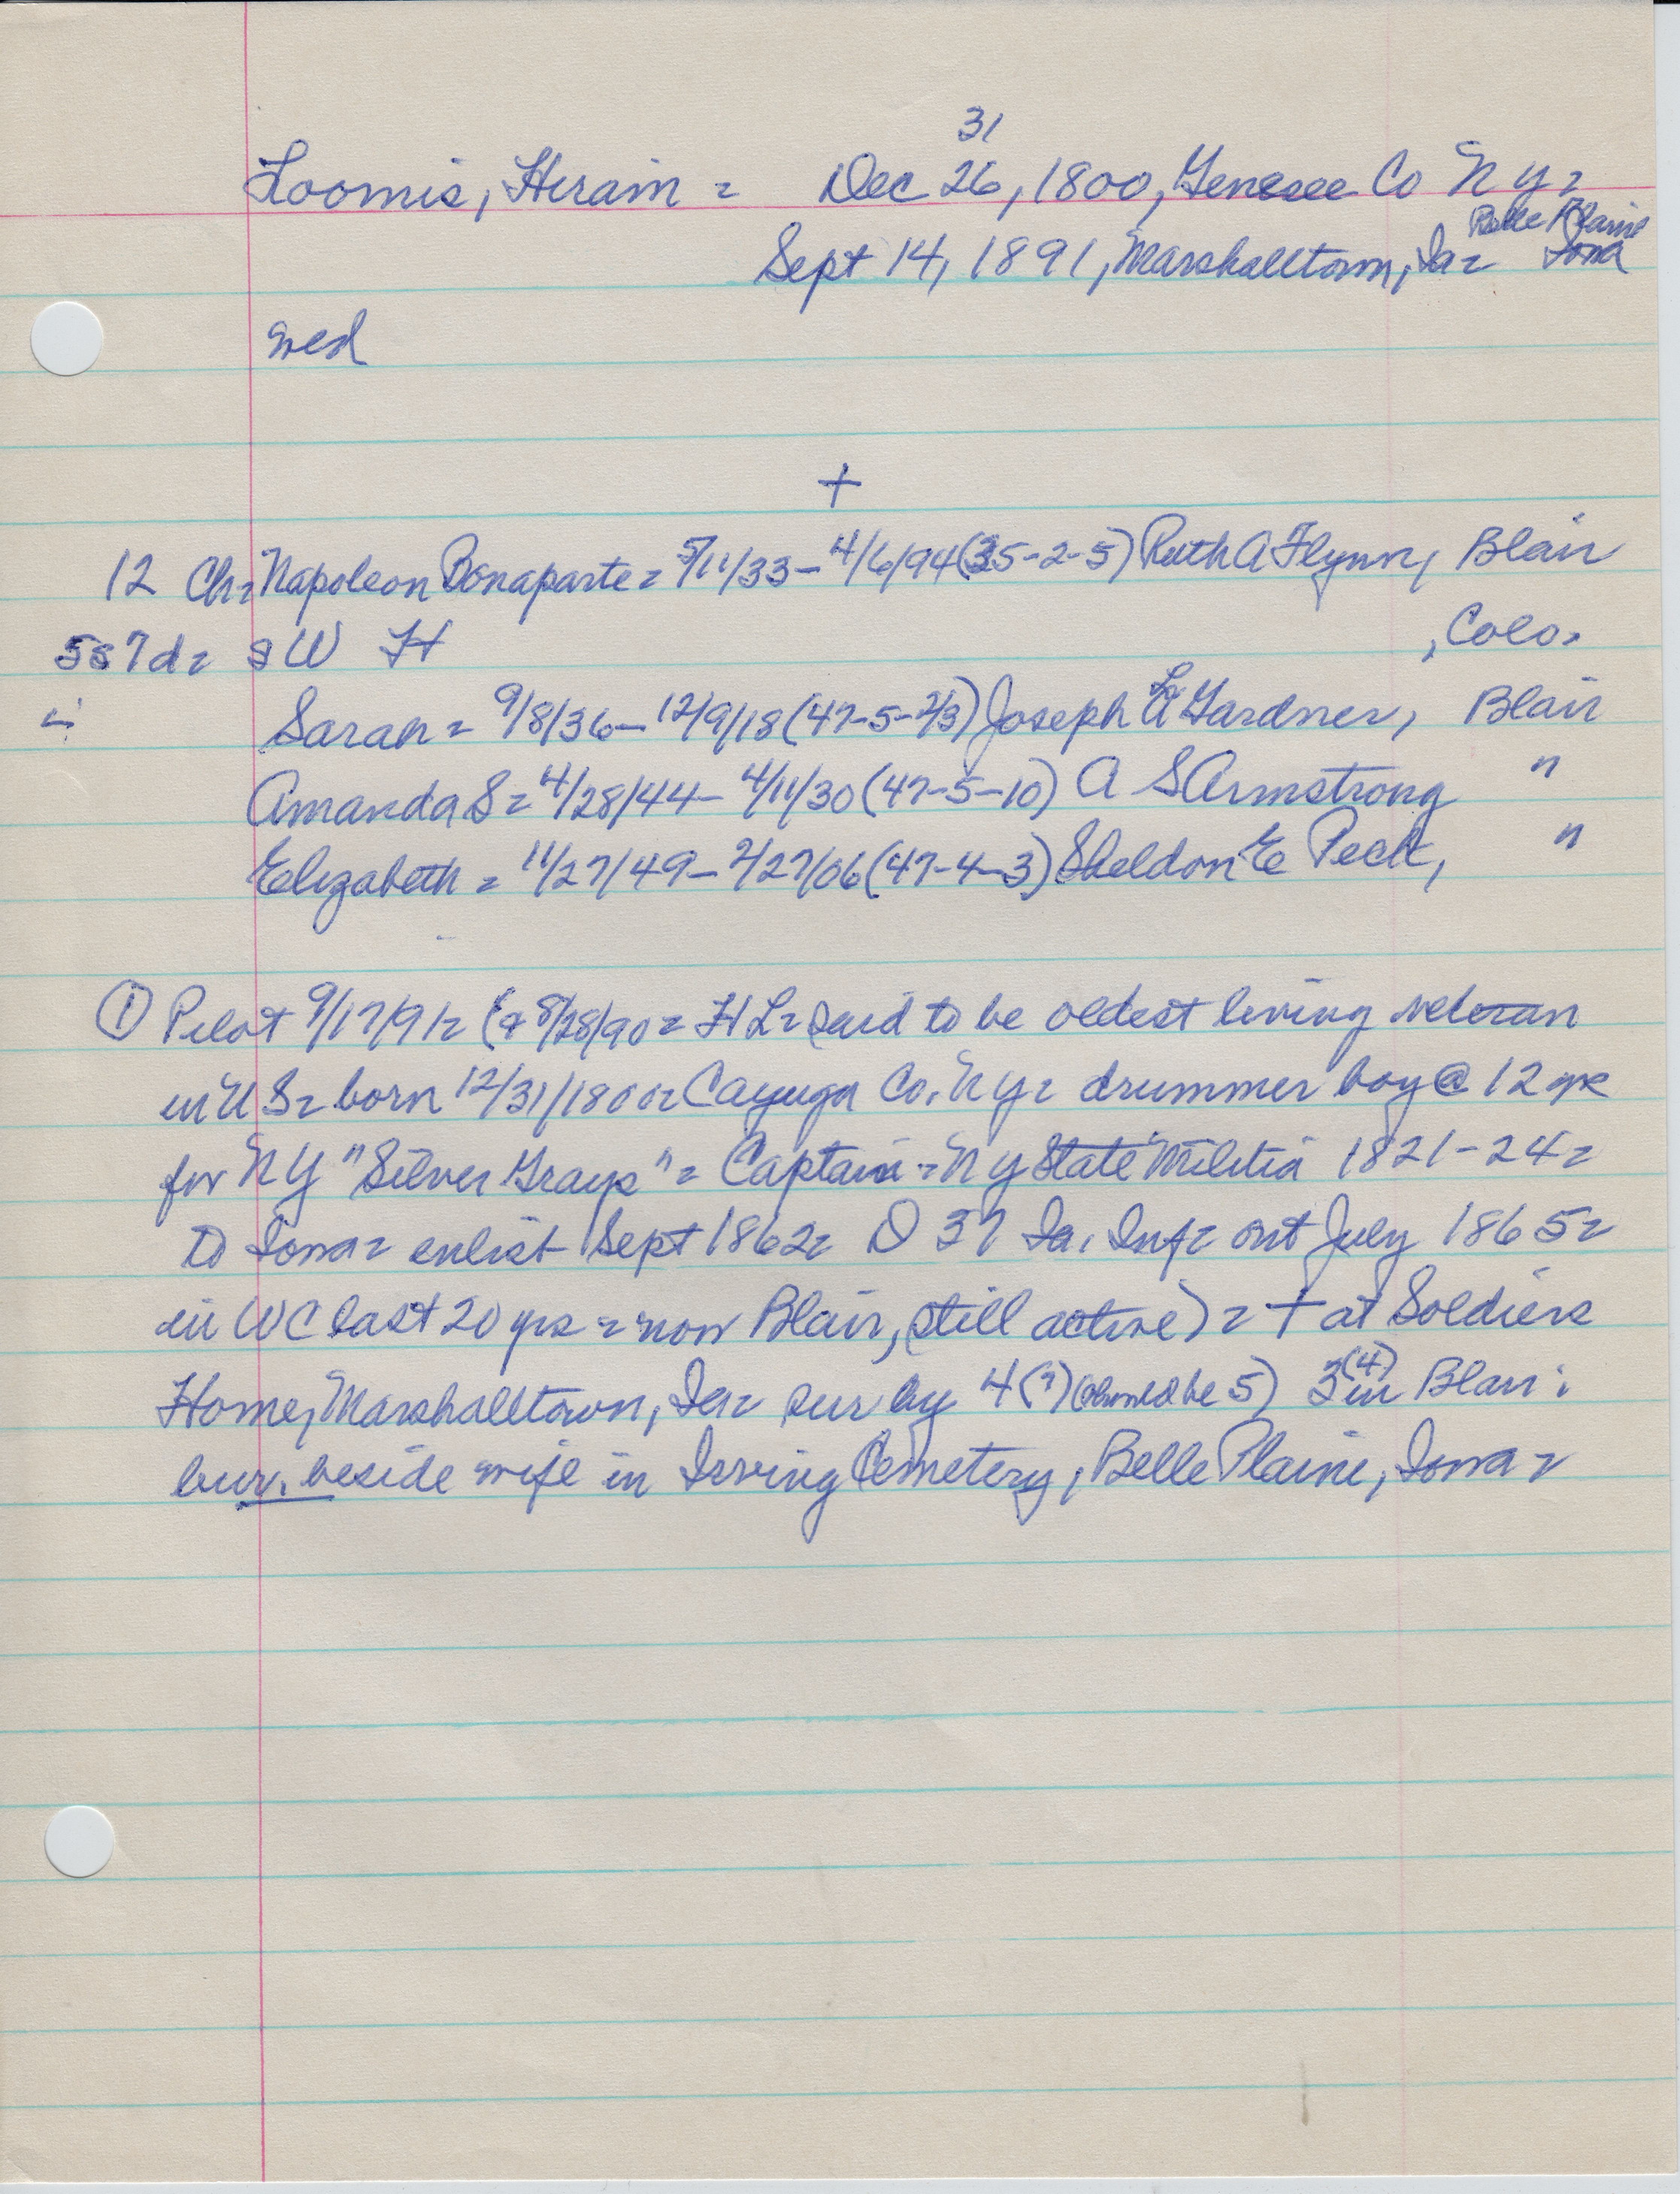 31
Loomis, Hiram = Dec 26, 1800, Genesee Co N Y =
Belle Plaine
Sept 14, 1891, Marshalltown, Ia = Iowa
wed
+
12 Ch = Napoleon Bonaparte = 5/11/33 - 4/6/94 (35-2-5) Ruth A Flynn, Blair
5s 7d = s W H , Colo.
Sarah = 9/8/36 - 12/9/18 (47-5-2/3) Joseph L Gardner, Blair
Amanda S = 4/28/44 - 4/11/30 (47-5-10) A S Armstrong "
Elizabeth = 11/27/49 - 2/27/06 (47-4-3) Sheldon E Peck, "
① Pilot 9/17/91 = (+ 8/28/90 = H L = said to be oldest living veteran
in U S = born 12/31/1800 = Cayuga Co. N Y = drummer boy @ 12 yrs
for N Y "Silver Grays" = Captain = N Y State Militia 1821-24 =
to Iowa = enlist Sept 1862 = D 37 Ia. Inf = out July 1865 =
in WC last 20 yrs = now Blair, still active) = + at Soldiers
Home, Marshalltown, Ia = sur by 4 (?) (should be 5) 3 (4) in Blair :
bur. beside wife in Irving Cemetery, Belle Plaine, Iowa =